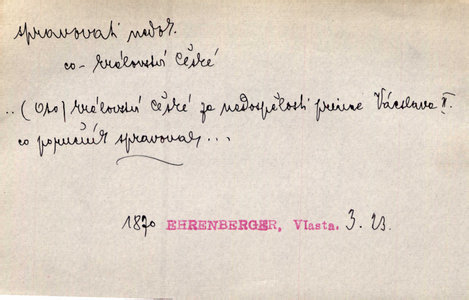 spravovati nedok.
co - království České
.. (Oto) království České za nedospělosti prince Václava II.
co poručník spravoval ...
1870 EHRENBERGER, Vlasta. 3. 23.